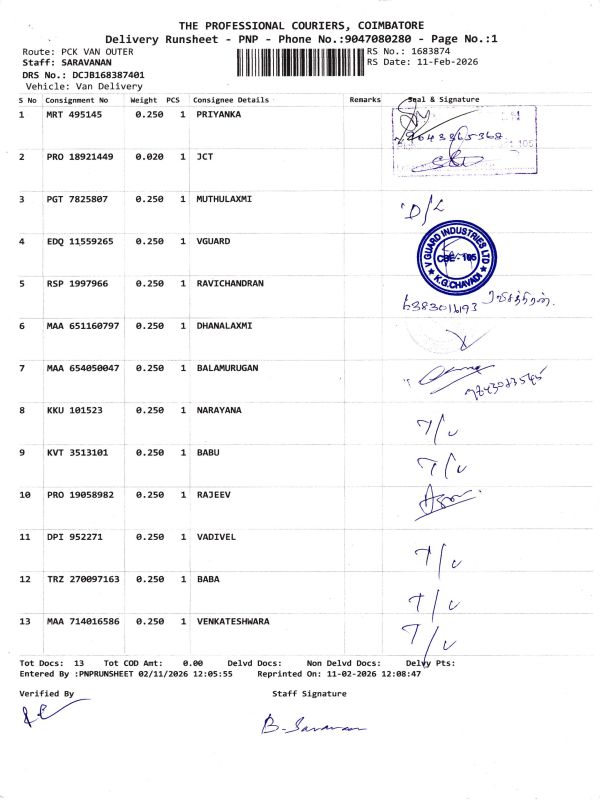 THE PROFESSIONAL COURIERS, COIMBATORE
Delivery Runsheet - PNP - Phone No.:9047080280 - Page No.:1
Route: PCK VAN OUTER
RS No.: 1683874
Staff: SARAVANAN
RS Date: 11-Feb-2026
DRS No.: DCJB168387401
Vehicle: Van Delivery
S No Consignment No Weight PCS Consignee Details Remarks Seal & Signature
1 MRT 495145 0.250 1 PRIYANKA
2 PRO 18921449 0.020 1 JCT
3 PGT 7825807 0.250 1 MUTHULAXMI D/L
4 EDQ 11559265 0.250 1 VGUARD
V GUARD INDUSTRIES LTD
CBE-105
K.G.CHAVADI
5 RSP 1997966 0.250 1 RAVICHANDRAN
6383016193
6 MAA 651160797 0.250 1 DHANALAXMI
7 MAA 654050047 0.250 1 BALAMURUGAN
8 KKU 101523 0.250 1 NARAYANA T/L
9 KVT 3513101 0.250 1 BABU T/L
10 PRO 19058982 0.250 1 RAJEEV
11 DPI 952271 0.250 1 VADIVEL T/L
12 TRZ 270097163 0.250 1 BABA T/L
13 MAA 714016586 0.250 1 VENKATESHWARA T/L
Tot Docs: 13 Tot COD Amt: 0.00 Delvd Docs: Non Delvd Docs: Delvy Pts:
Entered By :PNPRUNSHEET 02/11/2026 12:05:55 Reprinted On: 11-02-2026 12:08:47
Verified By Staff Signature
B. Saravanan